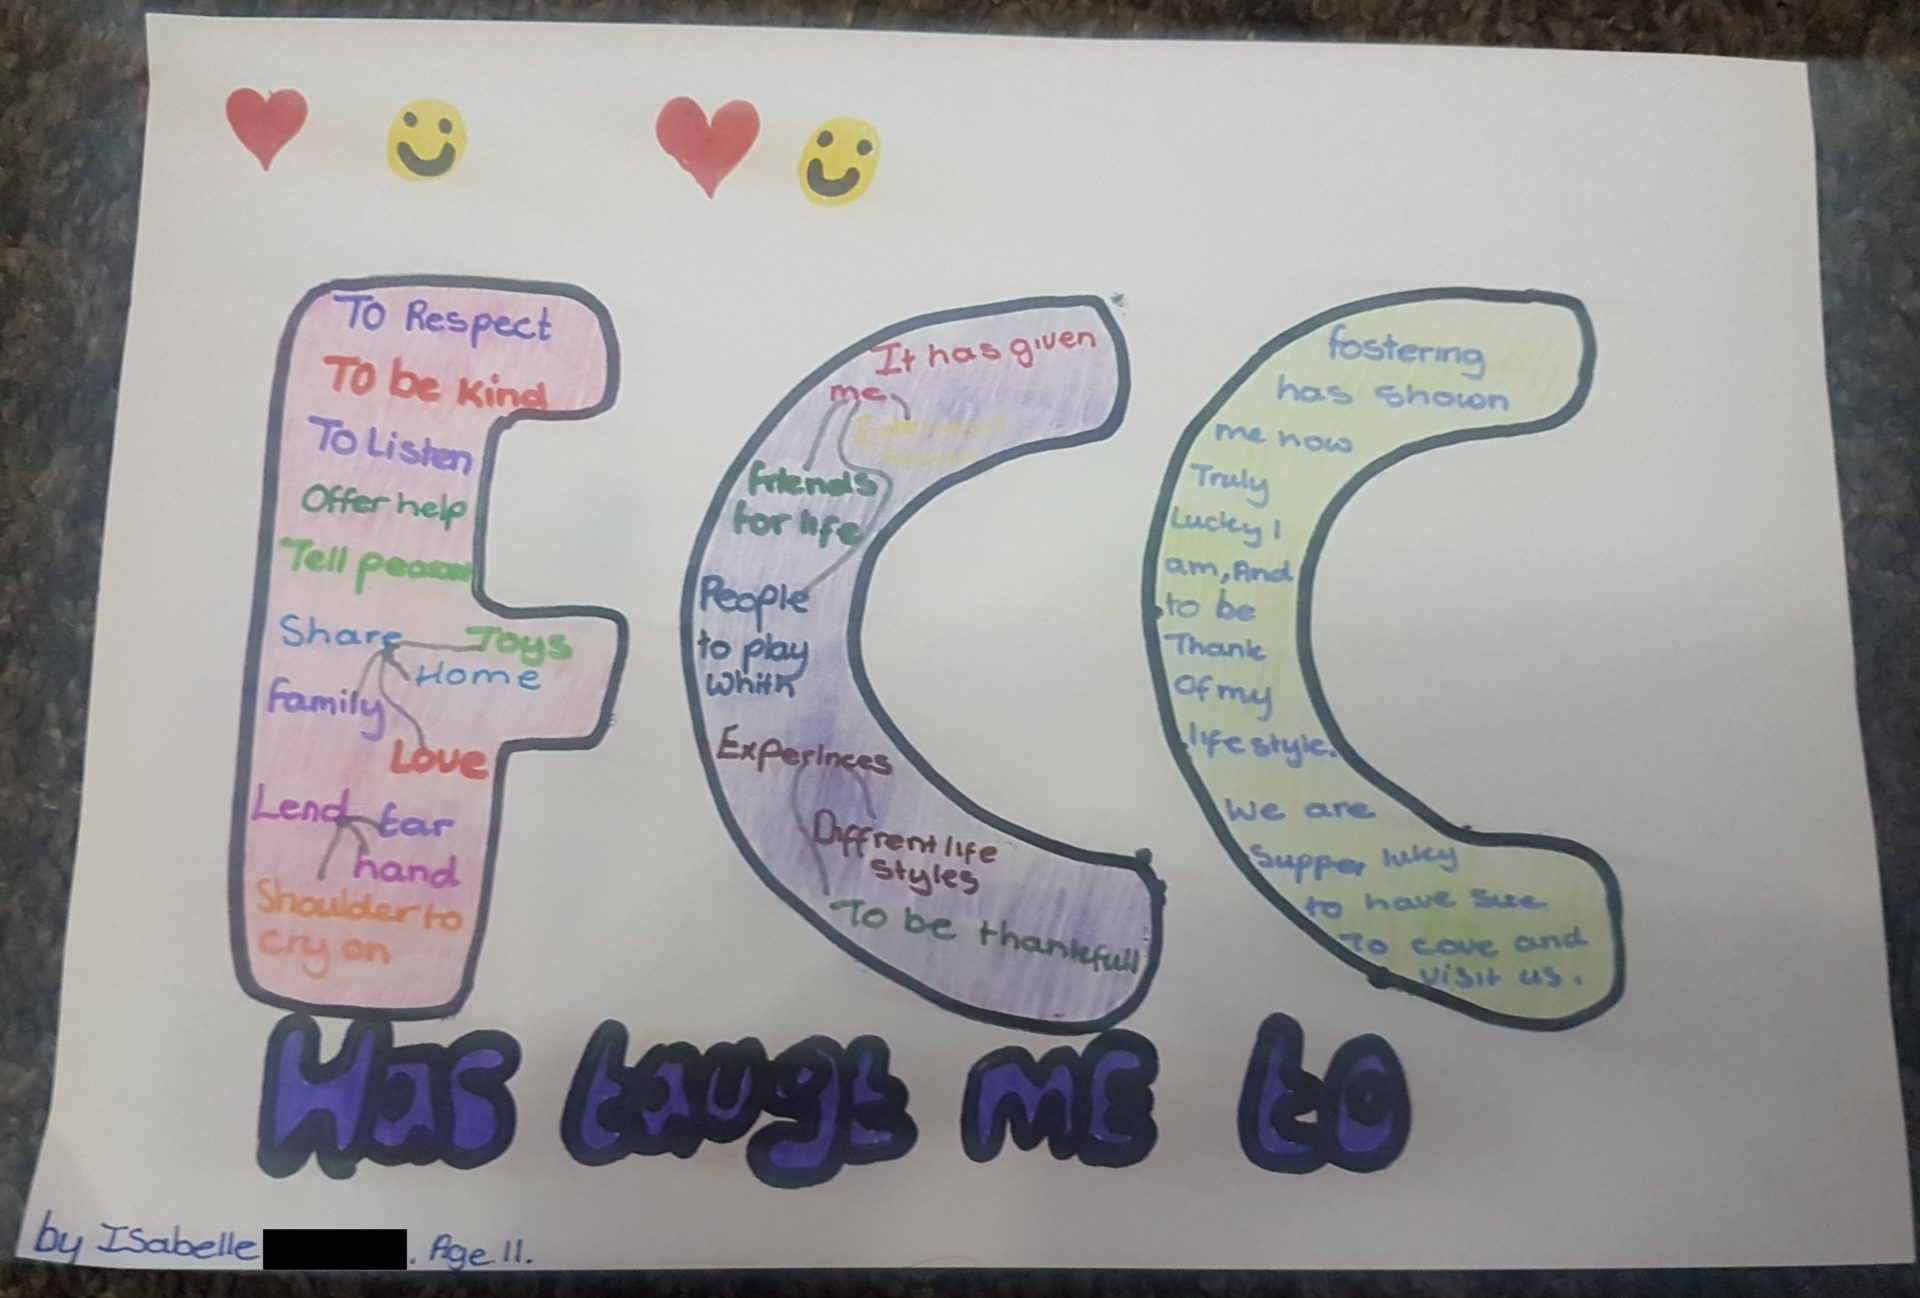 To Respect
To be Kind
To Listen
Offer help
Tell
Share Toys
Home
Family
Love
Lend Ear
hand
Shoulder to
cry on
It has given
me
friends
for life
People
to play
whith
Experinces
Diffrent life
styles
To be thankfull
fostering
has shown
me how
Truly
Lucky I
am, And
to be
Thank
Of my
life style.
We are
Supper luky
to have sue
To come and
visit us.
Has taugt me to
by Isabelle . Age 11.